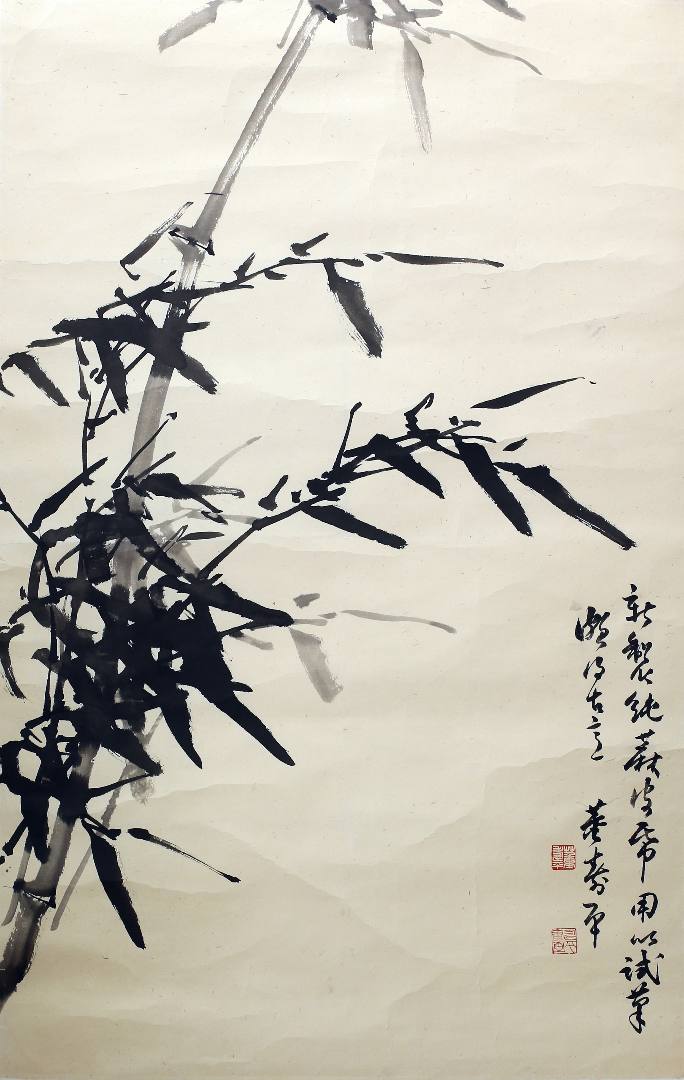 新製純蔴皮帋用以試筆
頗得古意
董壽平